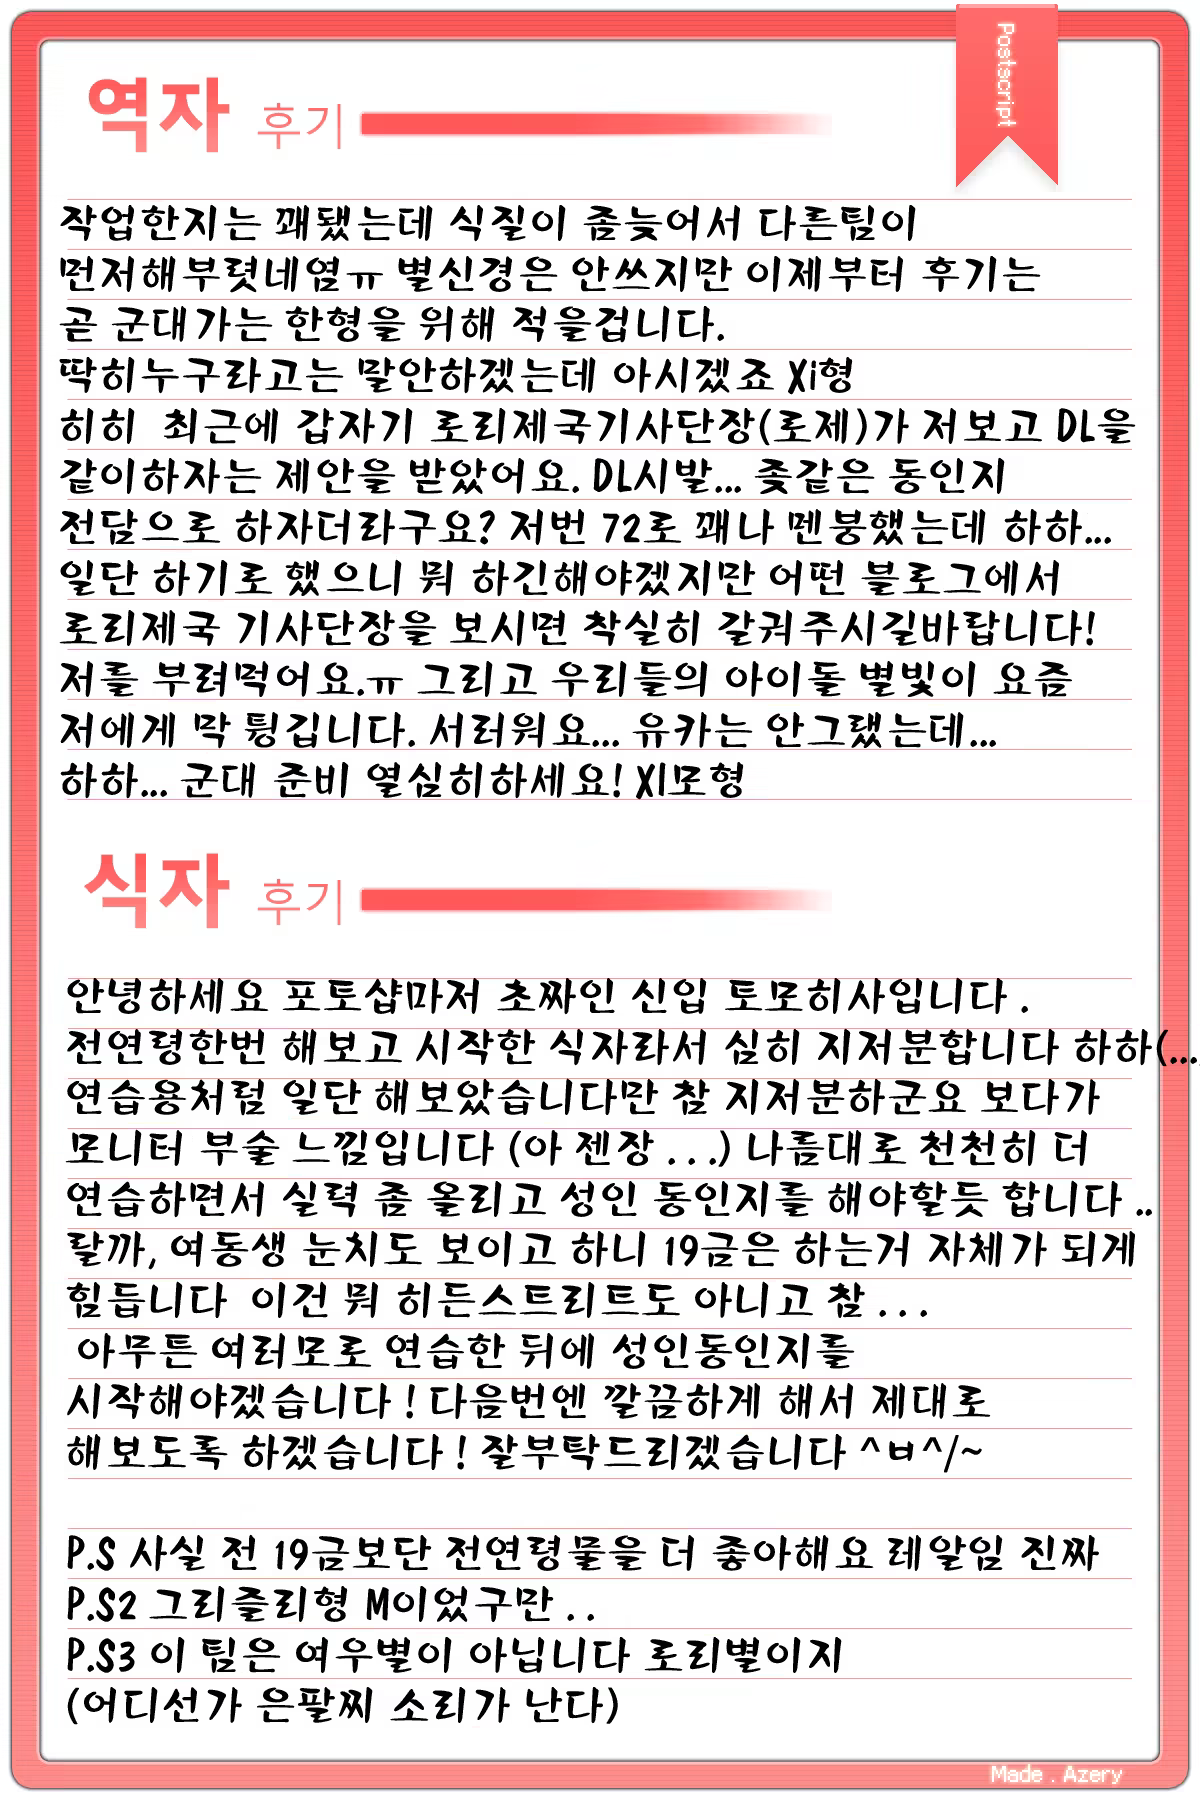 Postscript
역자 후기
작업한지는 꽤됐는데 식질이 좀늦어서 다른팀이
먼저해부렷네염ㅠ 별신경은 안쓰지만 이제부터 후기는
곧 군대가는 한형을 위해 적을겁니다.
딱히누구라고는 말안하겠는데 아시겠죠 Xi형
히히 최근에 갑자기 로리제국기사단장(로제)가 저보고 DL을
같이하자는 제안을 받았어요. DL시발... 좆같은 동인지
전담으로 하자더라구요? 저번 72로 꽤나 멘붕했는데 하하...
일단 하기로 했으니 뭐 하긴해야겠지만 어떤 블로그에서
로리제국 기사단장을 보시면 착실히 갈궈주시길바랍니다!
저를 부려먹어요.ㅠ 그리고 우리들의 아이돌 별빛이 요즘
저에게 막 튕깁니다. 서러워요... 유카는 안그랬는데...
하하... 군대 준비 열심히하세요! XI모형
식자 후기
안녕하세요 포토샵마저 초짜인 신입 토모히사입니다 .
전연령한번 해보고 시작한 식자라서 심히 지저분합니다 하하(...
연습용처럼 일단 해보았습니다만 참 지저분하군요 보다가
모니터 부술 느낌입니다 (아 젠장 . . .) 나름대로 천천히 더
연습하면서 실력 좀 올리고 성인 동인지를 해야할듯 합니다 ..
랄까, 여동생 눈치도 보이고 하니 19금은 하는거 자체가 되게
힘듭니다 이건 뭐 히든스트리트도 아니고 참 . . .
아무튼 여러모로 연습한 뒤에 성인동인지를
시작해야겠습니다 ! 다음번엔 깔끔하게 해서 제대로
해보도록 하겠습니다 ! 잘부탁드리겠습니다 ^ㅂ^/~
P.S 사실 전 19금보단 전연령물을 더 좋아해요 레알임 진짜
P.S2 그리즐리형 M이었구만 . .
P.S3 이 팀은 여우별이 아닙니다 로리별이지
(어디선가 은팔찌 소리가 난다)
Made . Azery